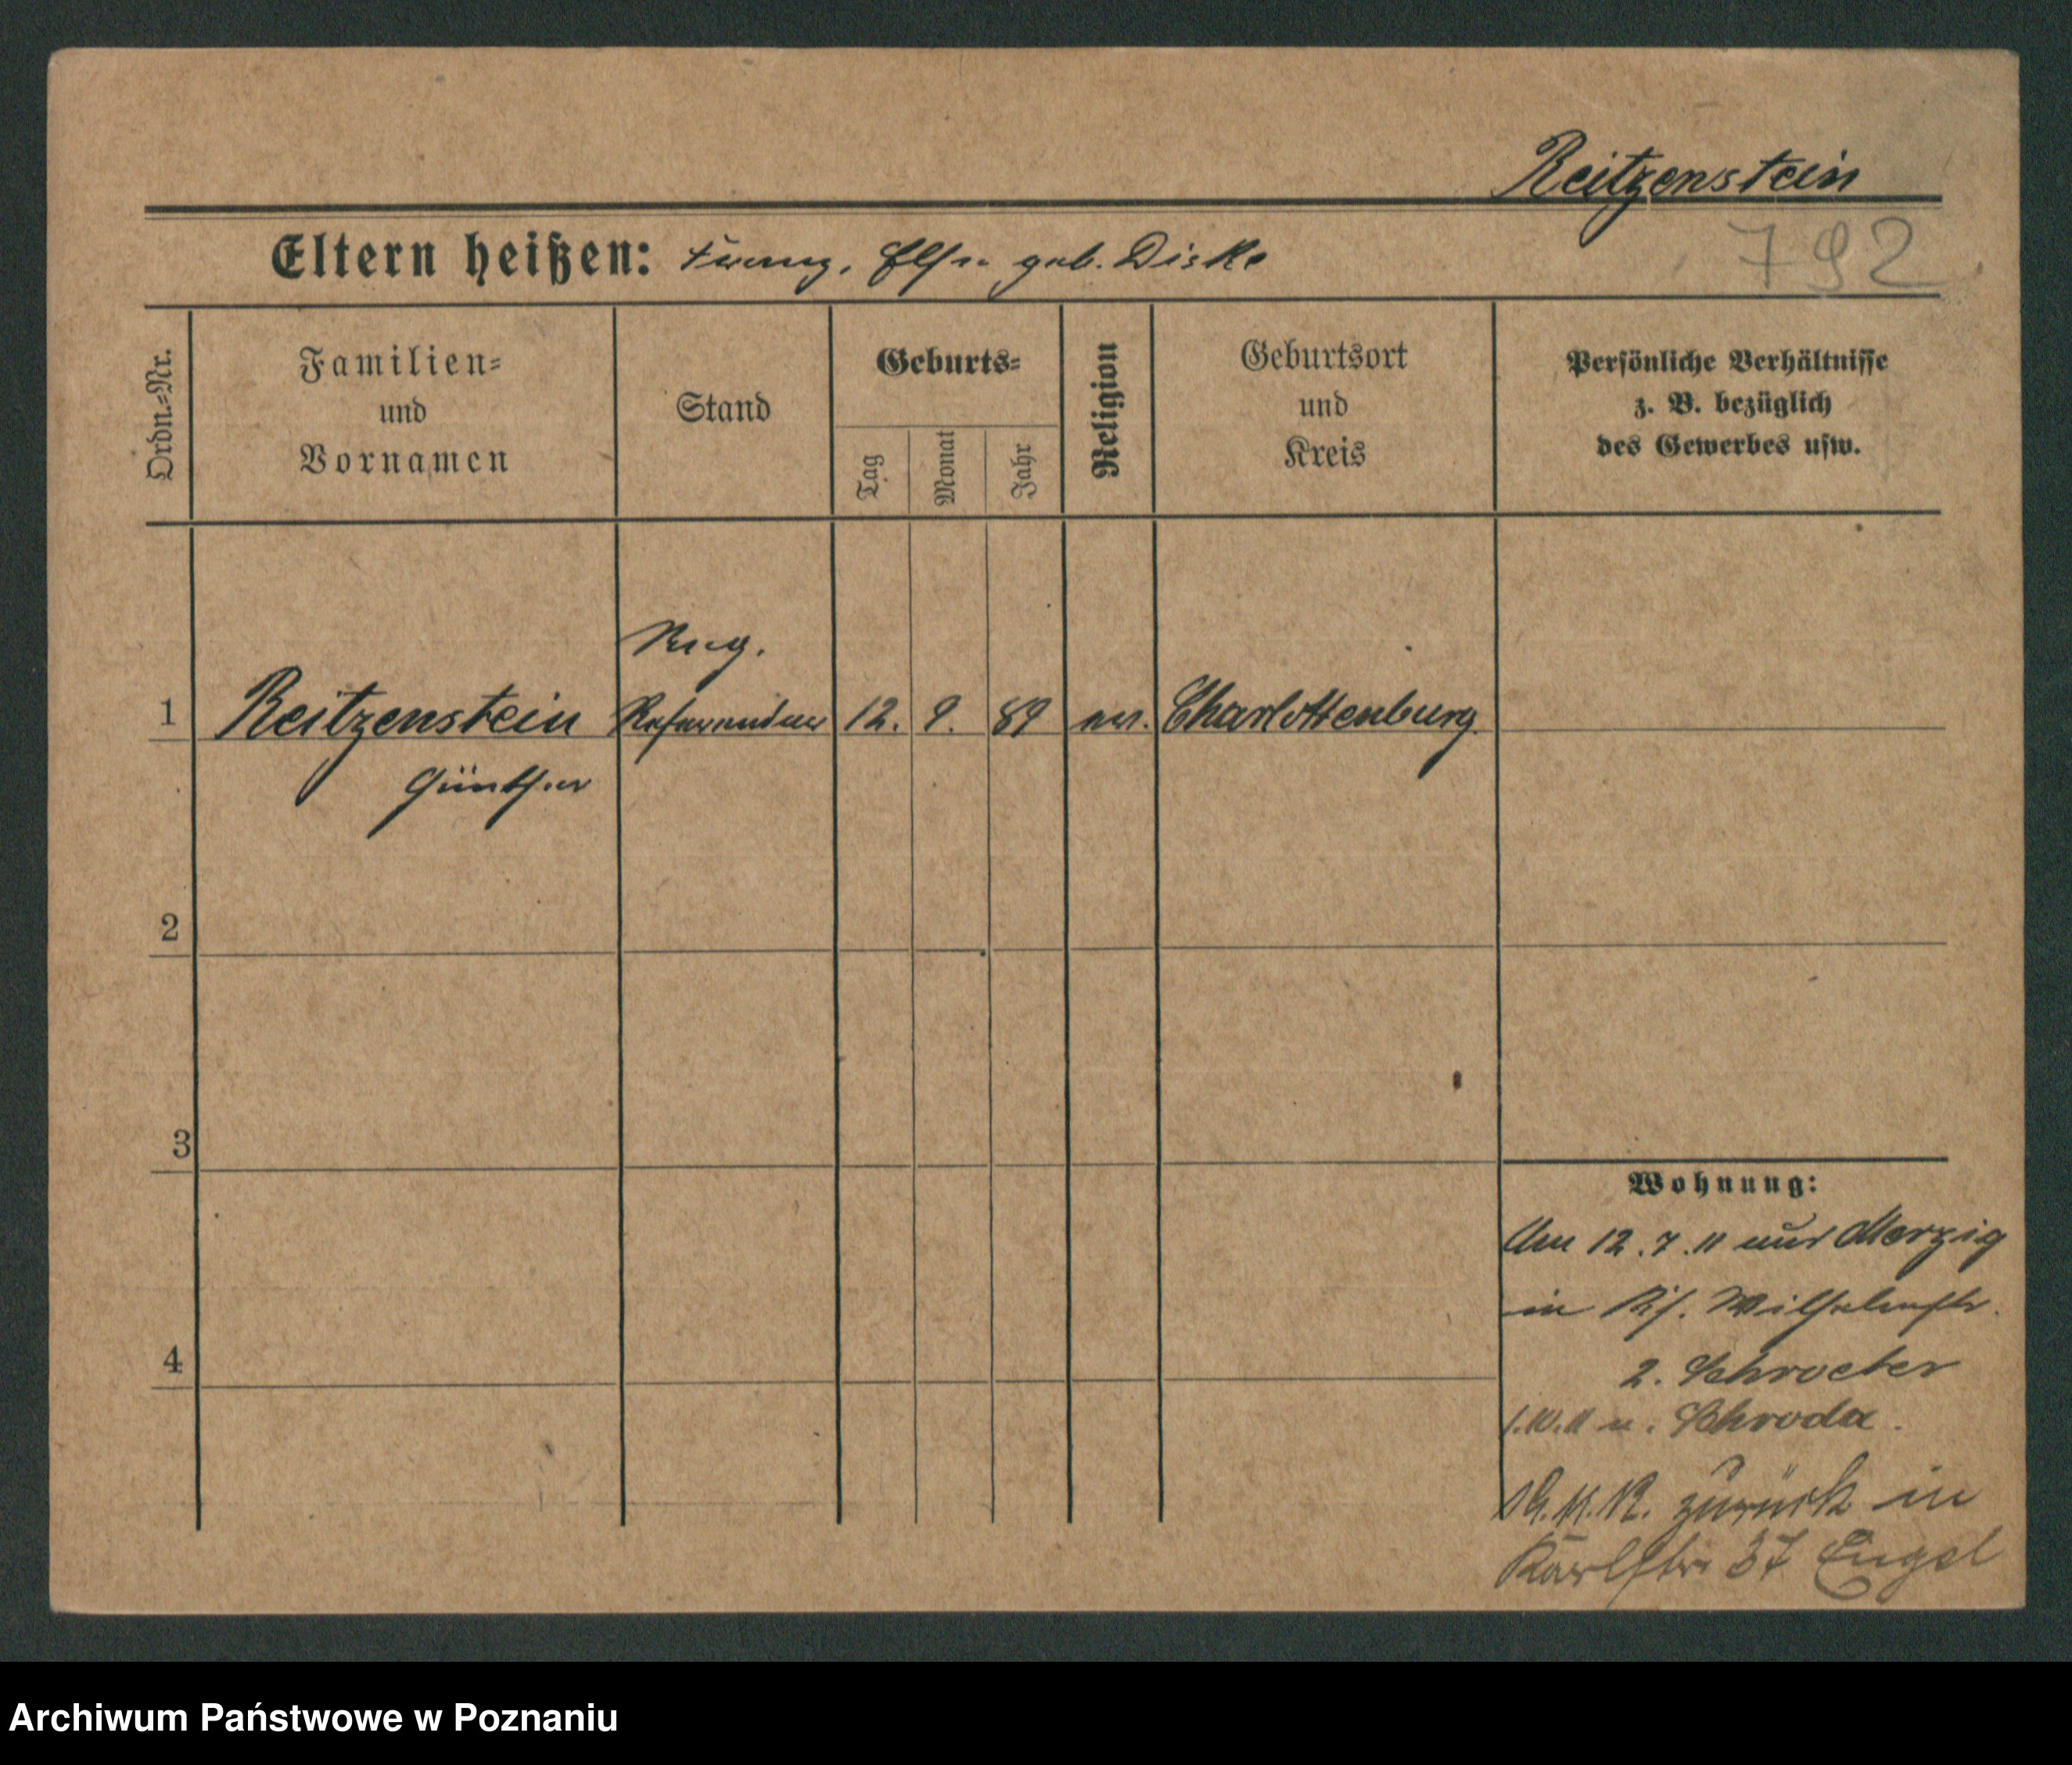 Reitzenstein
Eltern heißen: Franz, Else geb. Diske
792
Ordn.-Nr.
Familien-
und
Vornamen
Stand
Geburts-
Tag
Monat
Jahr
Religion
Geburtsort
und
Kreis
Persönliche Verhältnisse
z. B. bezüglich
des Gewerbes usw.
Reg.
1 Reitzenstein Referendar 12. 9. 89 ev. Charlottenburg.
Günther
2
3
4
Wohnung:
Am 12.7.11 aus Merzig
in Wilhelmstr.
2. Schroeter
1.10.11 n. Schroda.
zurück in
Karlstr. 37 Engel
Archiwum Państwowe w Poznaniu